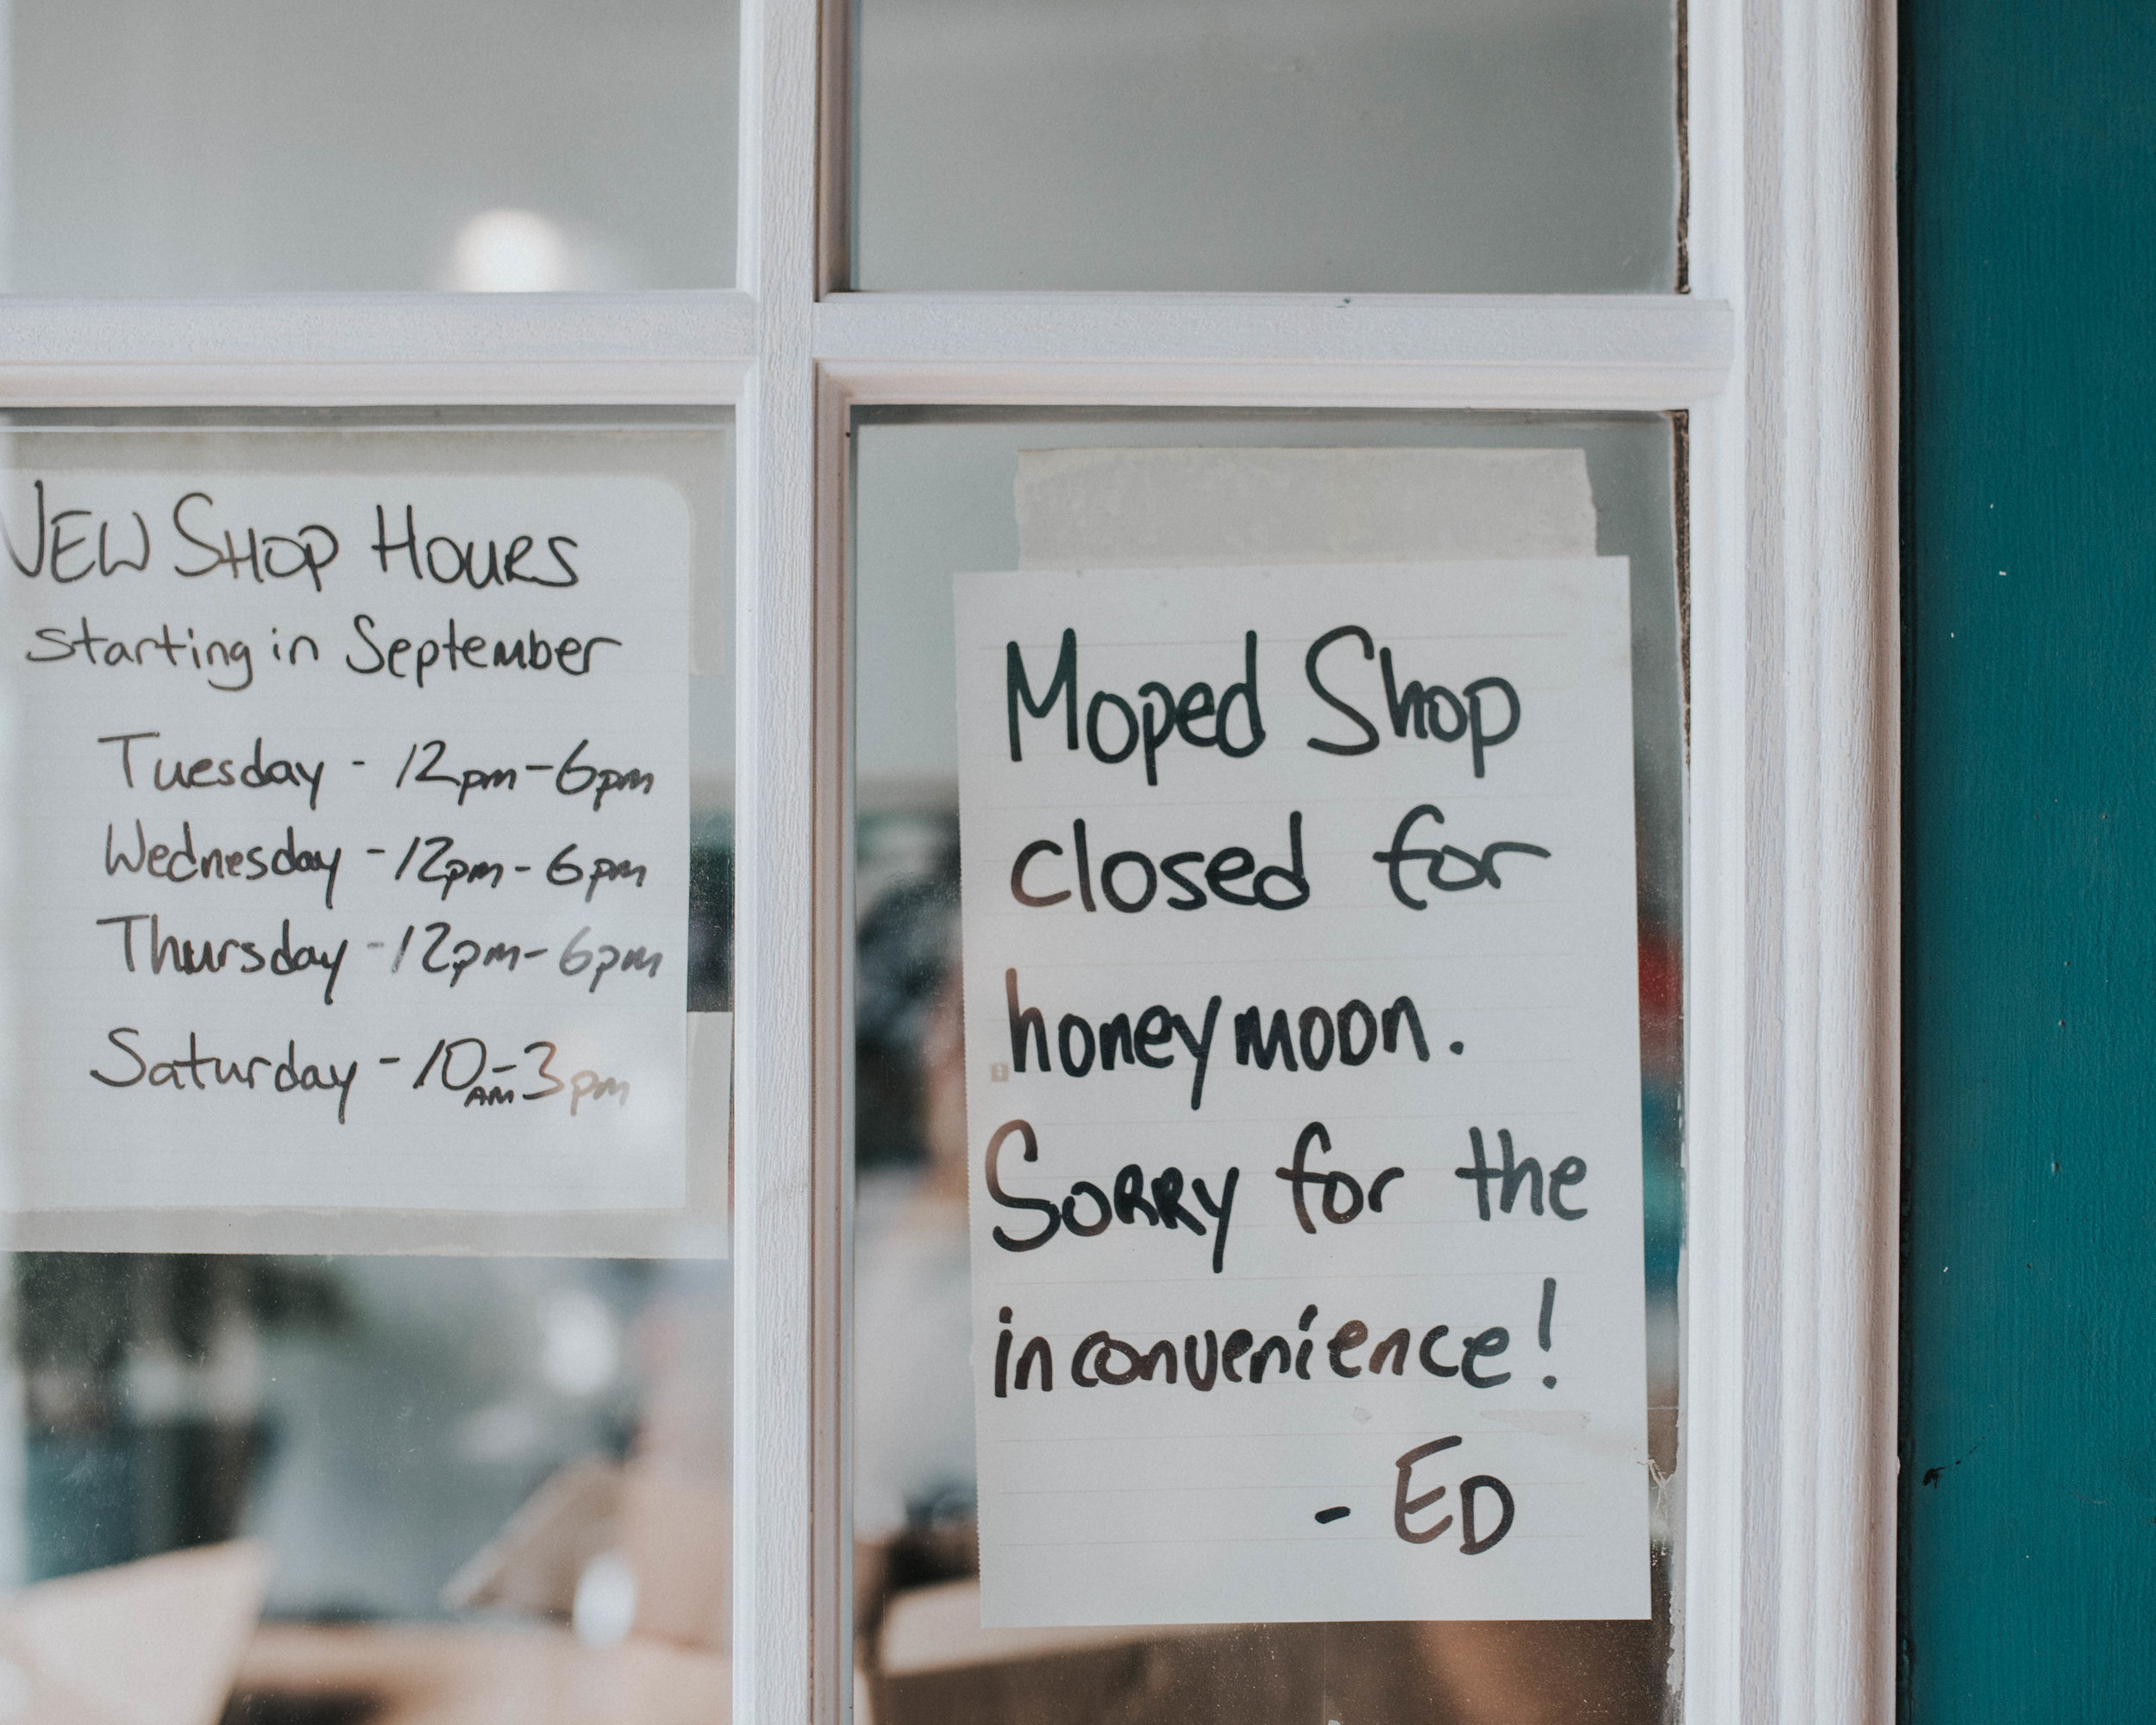 NEW SHOP HOURS
starting in September
Tuesday - 12pm-6pm
Wednesday - 12pm - 6pm
Thursday - 12pm - 6pm
Saturday - 10AM-3pm
Moped Shop
closed for
honeymoon.
SORRY for the
inconvenience!
- ED